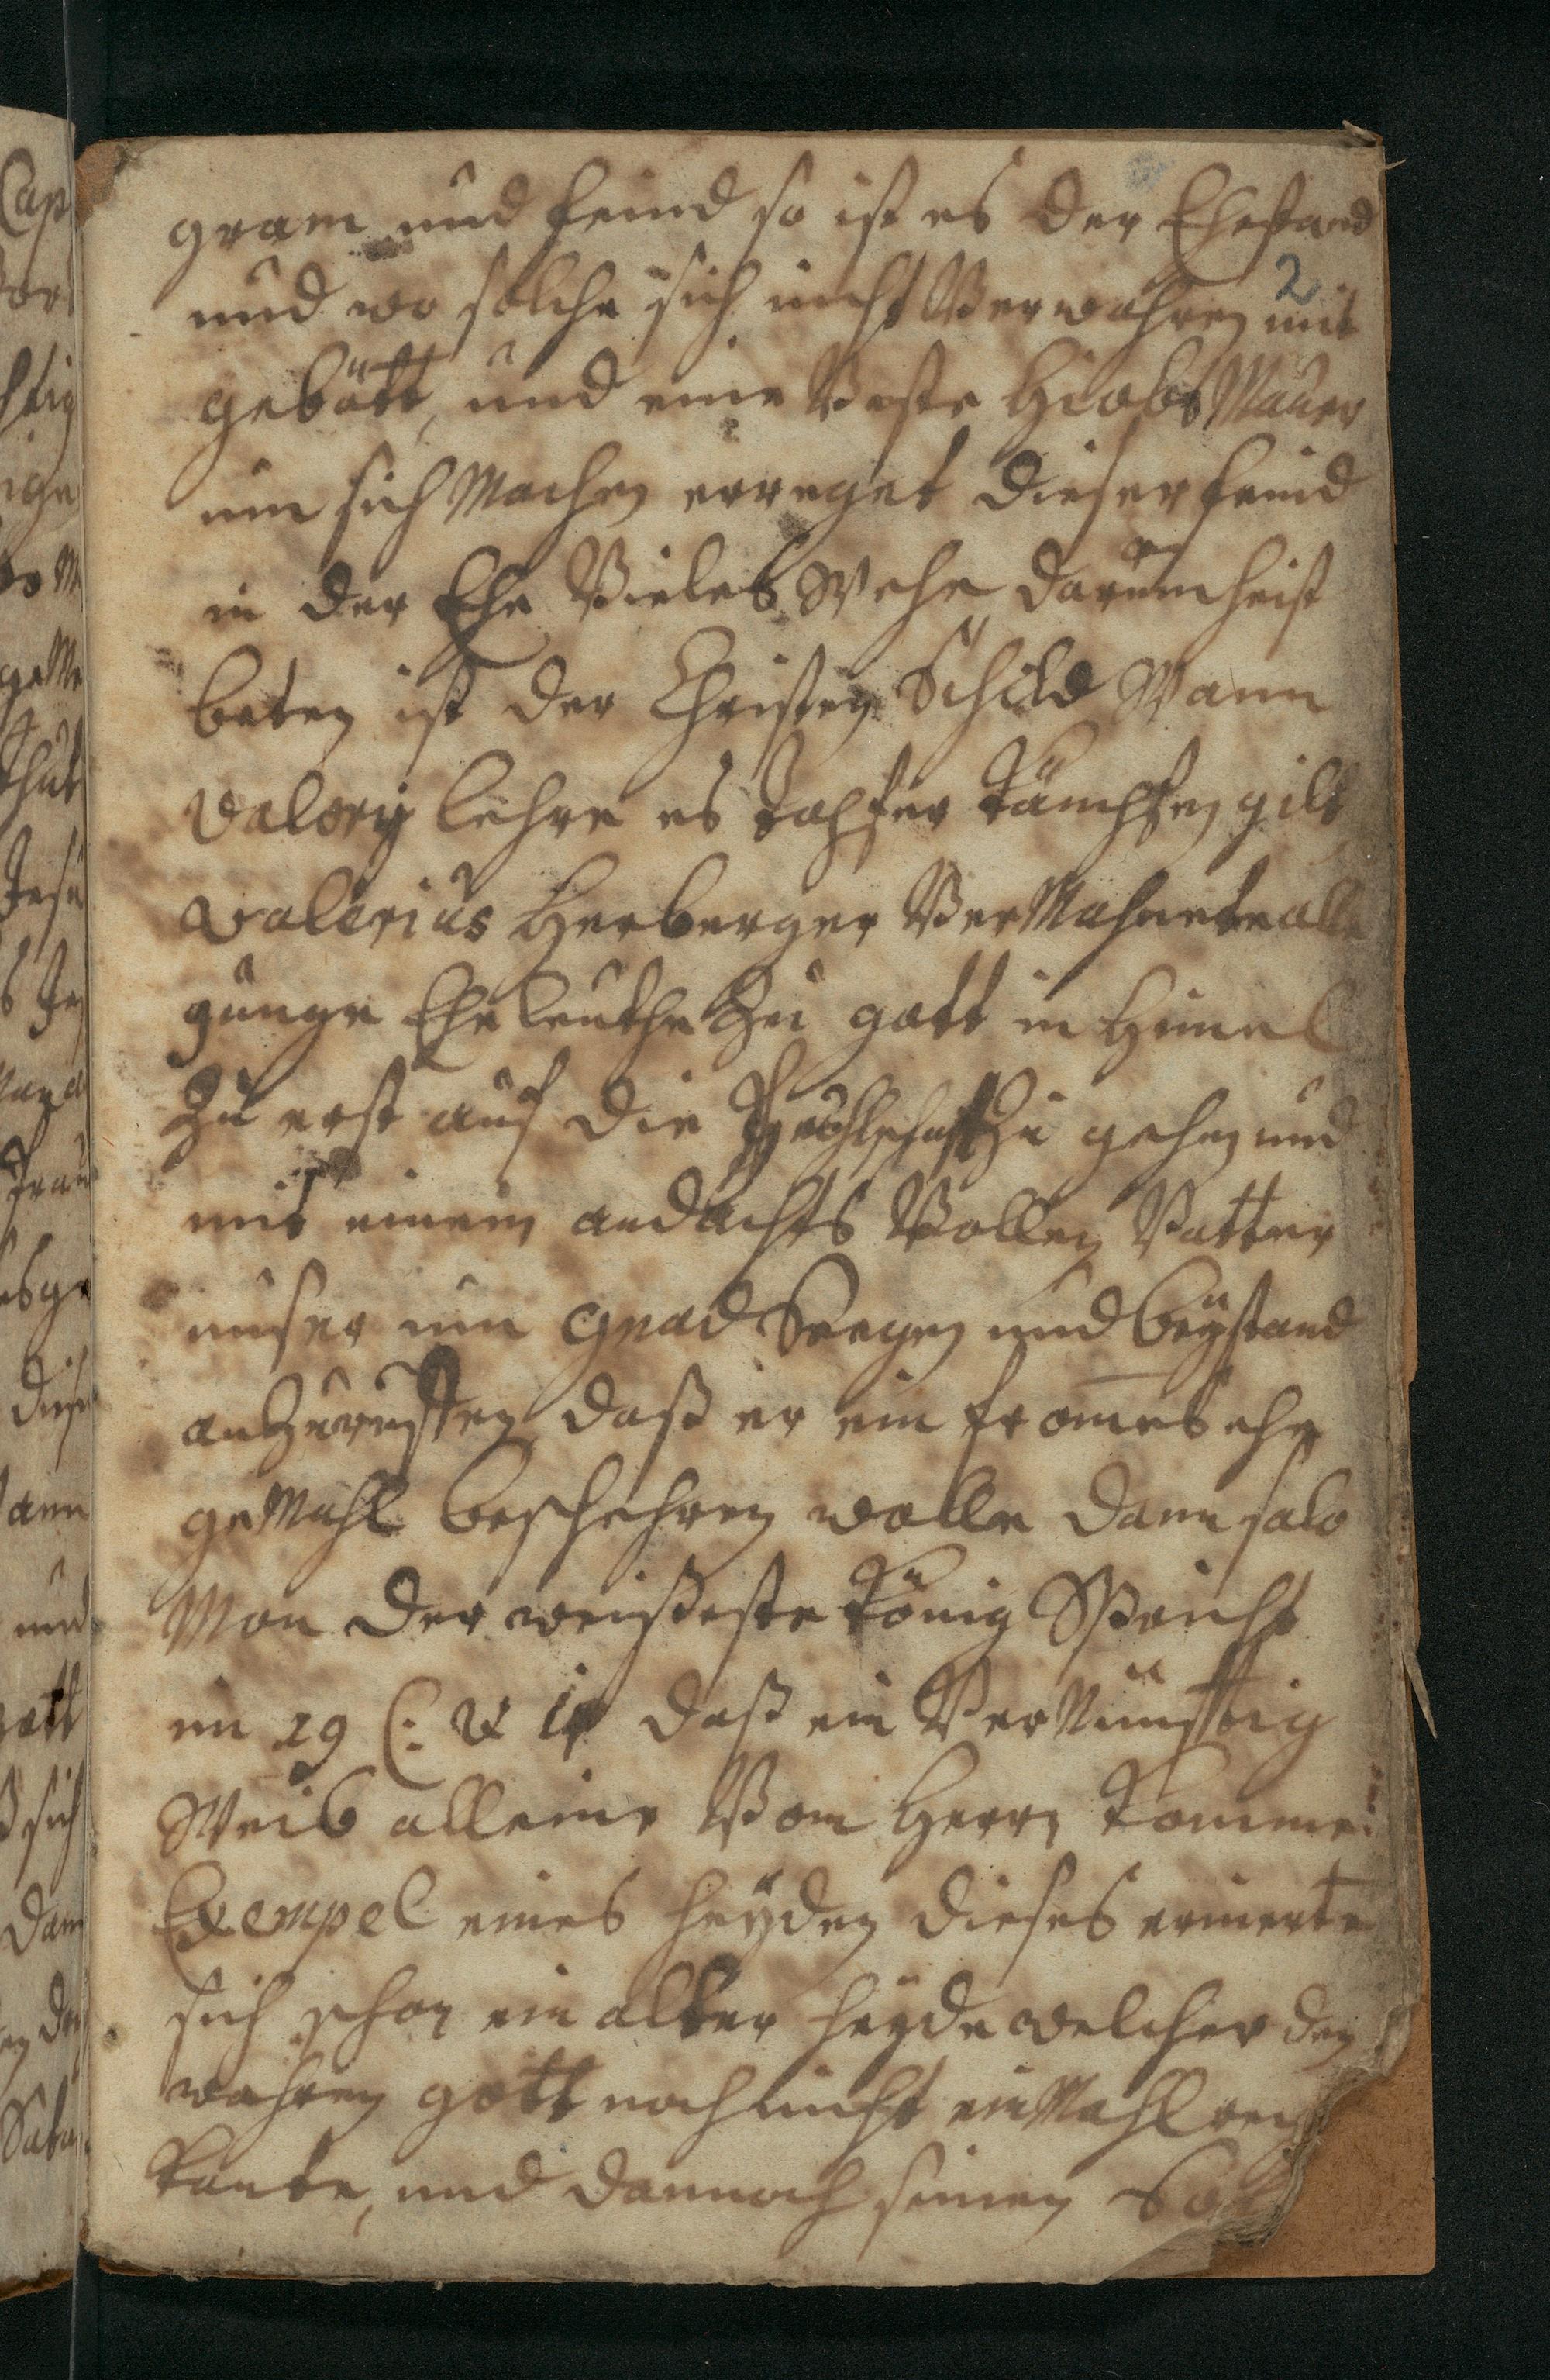 gram und feind so ist es der Ehestand
2
und wo solche sich nicht Verwahren mit
gebätt, und eine Veste Hiobs Mauer
um sich Machen erreget dieser feind
in der Ehe Vieles Wehe darum heist
beten ist der Christen Schild Wann
Valery lehre es tapfer kämpfen gilt
Valerius Herberger VerMahnete alle
junge Eheleuthe Zu gott in Himel
Zu erst auf die Zu gehen und
mit einem andachts Vollen Vatter
unser um gnad Seegen und beÿstand
anZuruffen daß er ein fromes ehe
geMahl beschehren wolle dann salo
Mon der weißeste König Spricht
im 19 C: V 14 daß ein VerNünfftig
Weib alleine Vom Herrn komme:
Exempel eines heÿden dieses erinerte
sich schon ein alter heyde welcher den
wahren gott noch nicht einMahl
kante, und dannoch seinen